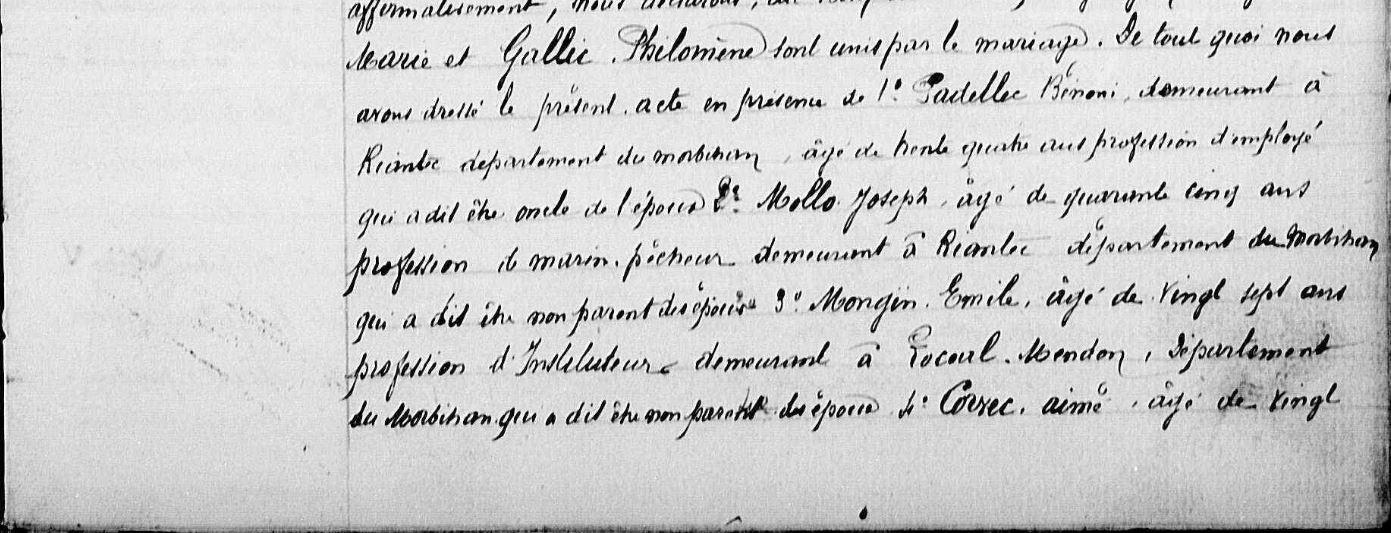 affirmativement, nous déclarons, au
Marie et Gallic. Philomène sont unis par le mariage. De tout quoi nous
avons dressé le présent. acte en présence de 1º Padellec Bénoni, demeurant à
Riantec département du Morbihan, âgé de trente quatre ans profession d'employé
qui a dit être oncle de l'époux 2º Mollo Joseph, âgé de quarante cinq ans
profession de marin. pêcheur demeurant à Riantec département du Morbihan
qui a dit être non parent des époux 3º Mongin. Emile, âgé de vingt sept ans
profession d'Instituteur demeurant à Locoal. Mendon, Département
du Morbihan qui a dit être non parent des époux 4º Corvec. aimé, âgé de vingt